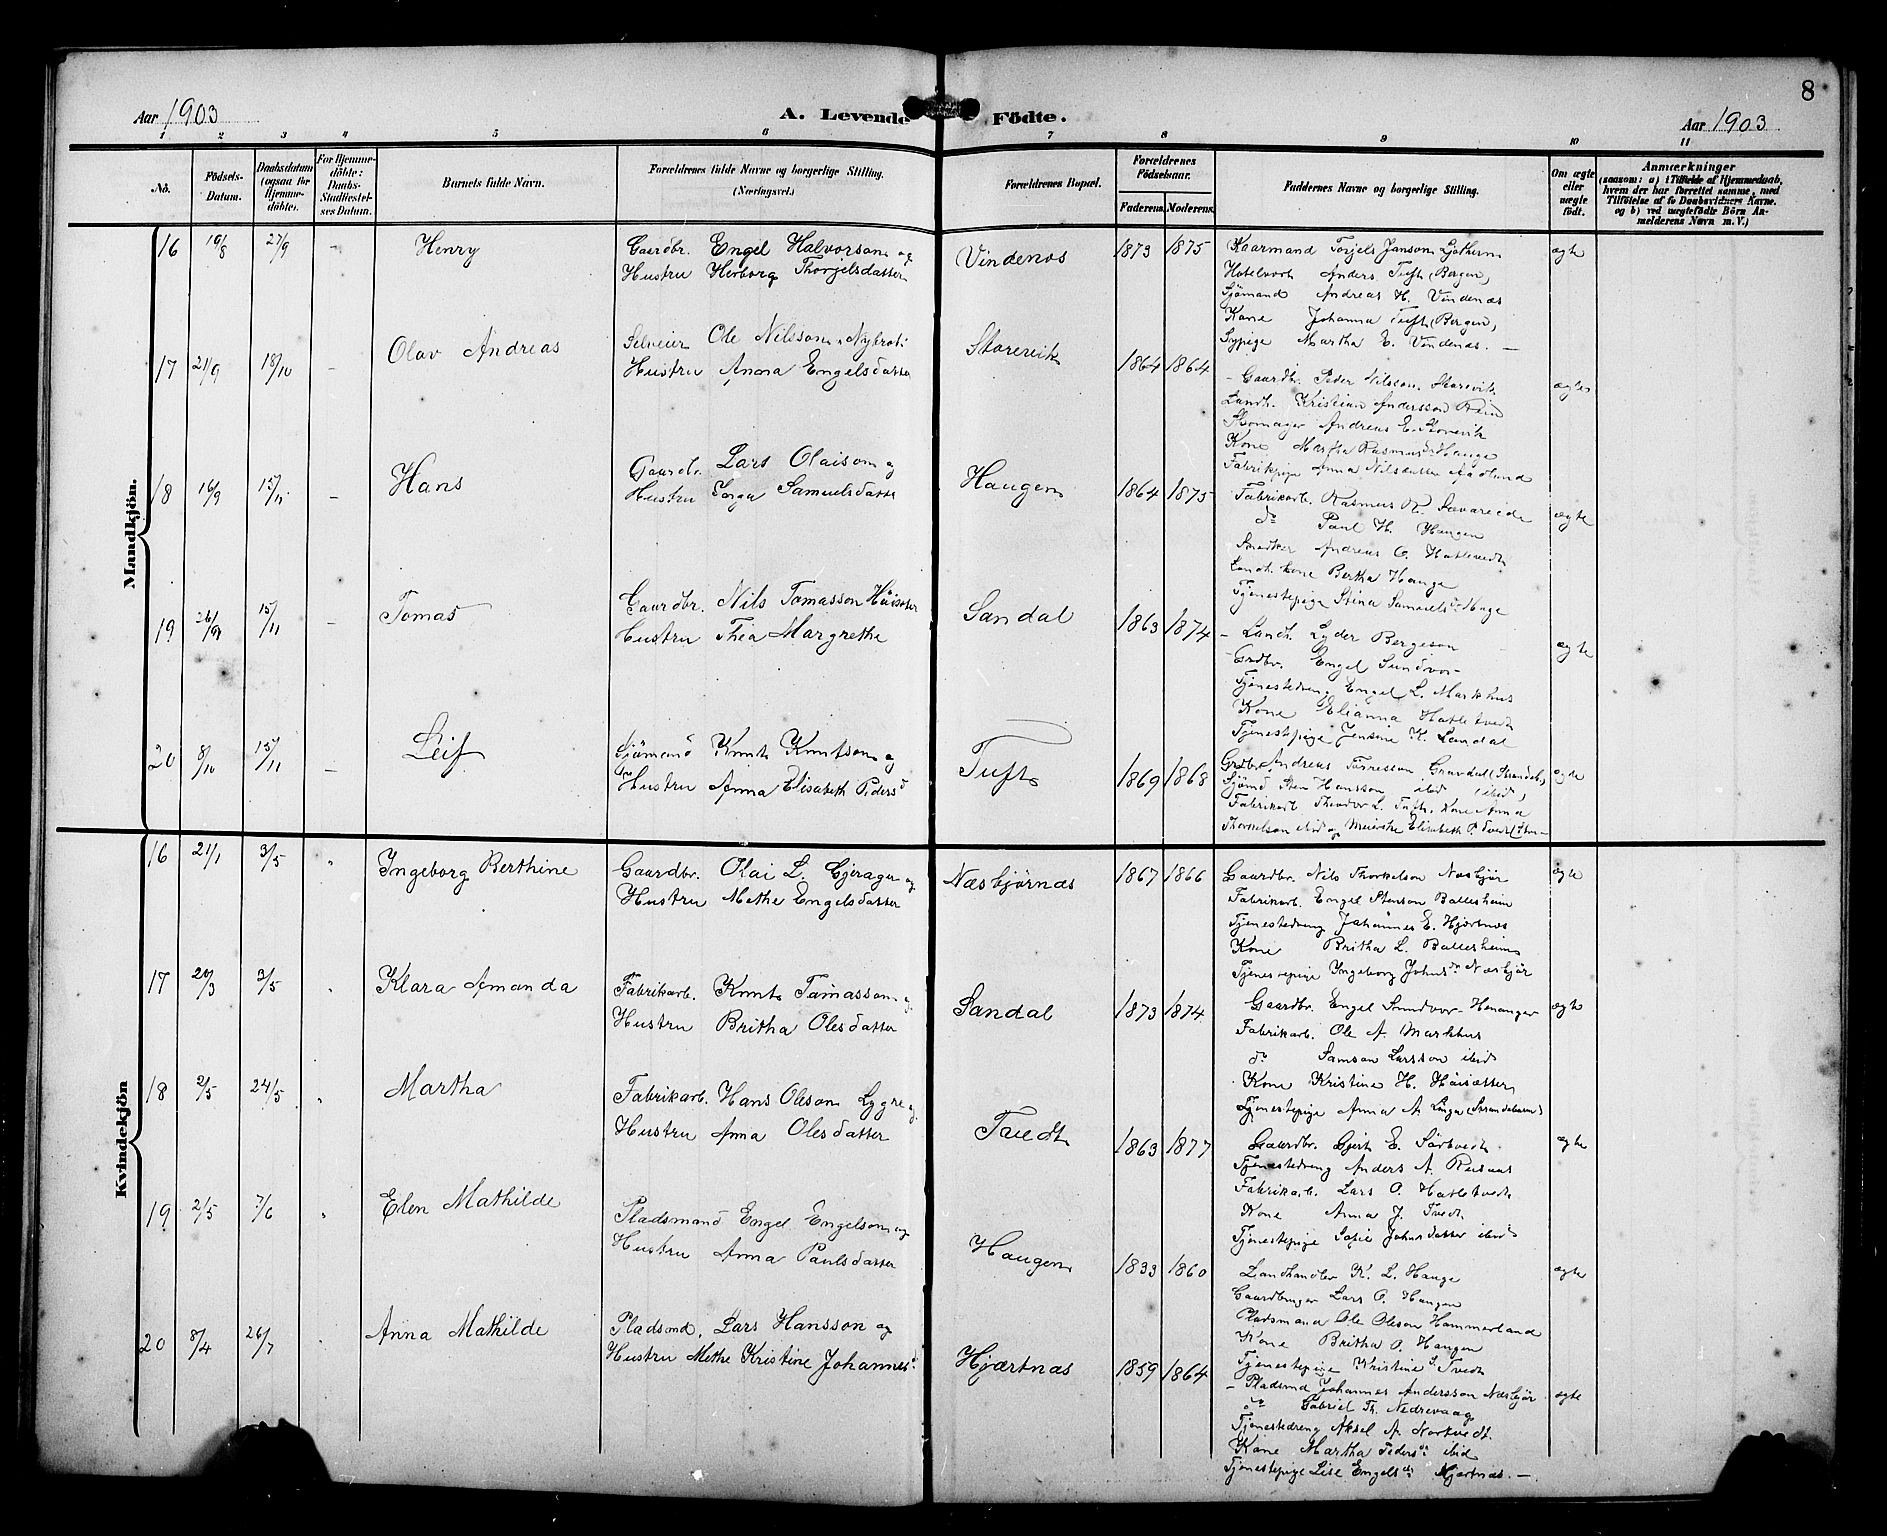 8
Aar 1903
A. Levende Födte.
Aar 1903
1 2 3 4 5 6 7 8 9 10 11
No.
Födsels-Datum.
Daabsdatum (ogsaa for Hjemmedöbte).
For Hjemmedöbte: Daabs-Stadfæstelses Datum.
Barnets fulde Navn.
Forældrenes fulde Navne og borgerlige Stilling.
(Næringsvei.)
Forældrenes Bopæl.
Forældrenes Födselsaar.
Faderens. Moderens.
Faddernes Navne og borgerlige Stilling.
Om ægte eller uægte födt.
Anmærkninger
(saasom: a) i Tilfælde af Hjemmedaab, hvem der har forrettet samme, med Tilföielse af to Daabsvidners Navne. og b) ved uægtefödte Börn Anmelderens Navn m. V.)
Mandkjön.
16 19/8 27/9 – Henry
Gaardbr. Engel Halvorson og
Hustru Herborg Thorjelsdatter
Vindenes 1873 1875
Kaarmand Torjels Janson
Hotelvert Anders Tuft (Bergen)
Sjømand Andreas H. Vindenæs
Kone Johanna Tuft (Bergen)
Sypige Martha E. Vindenæs. –
ægte
17 21/9 18/10 – Olav Andreas
Selveier Ole Nilsson
Hustru Anna Engelsdatter
Storevik 1864 1864
– Gaardbr. Peder Nilsson Storevik
Landh. Kristian Andersson
Skomager Andreas E. Storevik
Kone Martha Rasmusd. Hauge
Fabrikpige Anna Nilsdatter Aadland
ægte
18 16/9 15/11 – Hans
Gaardbr. Lars Olaison og
Hustru Samuelsdatter
Haugen 1864 1875
Fabrikarb. Rasmus R. Sævareide
do Paul H. Haugen
Snedker Andreas O. Hatletvedt
Landh. kone Bertha Hauge
Tjenestepige Stina Samuelsd. Hauge
ægte
19 26/9 15/11 – Tomas
Gaardbr. Nils Tomasson
Hustru Thea Margrethe
Sandal 1863 1874
– Landh. Lyder Bergeson
– Grdbr. Engel Sundvor –
Tjenestedreng Engel L. Markhus
Kone Elianna Hatletvedt
Tjenestepige Jensine K. Sandal
ægte
20 8/10 15/11 – Leif
Sjømand Knut Knutson og
Hustru Anna Elisabeth Pedersd
Tuft 1869 1868
Grdbr. Andreas Torresson Gravdal (Strandeb.)
Sjømd Sten Hansson ibid
Fabrikarb Theodor L. Tuft, Kone Anna
Thorkelson ibid og Meierske Elisabeth P. Tvedt
ægte
Kvindekjön
16 21/1 3/5 " Ingeborg Berthine
Gaardbr. Olai L. Gjerager og
Hustru Methe Engelsdatter
Næsbjørnæs 1867 1866
Gaardbr. Nils Thorkelson Næsbjør
Fabrikarb. Engel Stenson Ballesheim
Tjenestedreng Johannes E. Hjertnes
Kone Britha L. Ballesheim
Tjenestepige Ingeborg Johnsdr Næsbjør
ægte
17 20/3 3/5 " Klara Amanda
Fabrikarb. Knut Tomasson og
Hustru Britha Olesdatter
Sandal 1873 1874
Gaardbr. Engel Sundvor Henanger
Fabrikarb. Ole A. Markhus
do Samson Larsson ibid
Kone Kristine H. Høisæter
Tjenestepige Anna A. Linga (Strandebarm)
ægte
18 2/5 24/5 " Martha
Fabrikarb. Hans Oleson Lygre og
Hustru Anna Olesdatter
Tvedt 1863 1877
Gaardbr. Gjert E. Sørtvedt
Tjenestedreng Anders A. Reisæs
Fabrikarb. Lars O. Hatletvedt
Kone Anna J. Tvedt
Tjenestepige Sofie Johnsdatter ibid
ægte
19 2/5 7/6 " Elen Mathilde
Pladsmand Engel Engelson og
Hustru Anna Paulsdatter
Haugen 1833 1860
Landhandler K. L. Hauge
Gaardbruger Lars O. Haugen
Pladsmand Ole Oleson Hammerland
Kone Britha O. Haugen
Tjenestepige Kristine S. Tvedt
ægte
20 8/4 26/7 " Anna Mathilde
Pladsmd. Lars Hansson og
Hustru Methe Kristine Johannesd.
Hjærtnæs 1859 1864
– Pladsmd Johannes Andersson Næsbjør
do Gabriel Th. Nedrevaag
Tjenestedreng Aksel A. Nortvedt.
Kone Martha Pedersdr ibid
Tjenestepige Lise Engelsdr Hjærtnæs. –
ægte